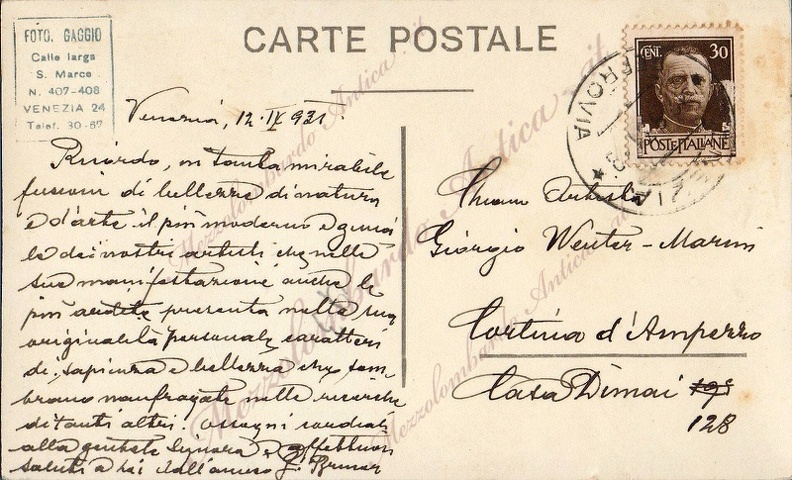 CARTE POSTALE
FOTO. GAGGIO
Calle larga
S. Marco
N. 407-408
VENEZIA 24
Telef. 30-67
CENT. 30
POSTE ITALIANE
ROVIA
Venezia, 12·IX 931
Ricordo, in tanta mirabile
fusione di bellezze di natura
e d'arte il più moderno e genia
le dei nostri artisti che nelle
sue manifestazioni anche le
più ardite presenta nella sua
originalità personale caratteri
di sapienza e bellezza che sem
brano naufragate nelle ricerche
di tanti altri. Ossequi cordiali
alla gentile Signora e affettuosi
saluti a Lei dall'amico G.
Chiaro Artista
Giorgio Wenter-Marini
Cortina d'Ampezzo
Casa Dimai
128
Mezzolombardo Antica
Mezzolombardo Antica .it
Mezzolombardo Antica